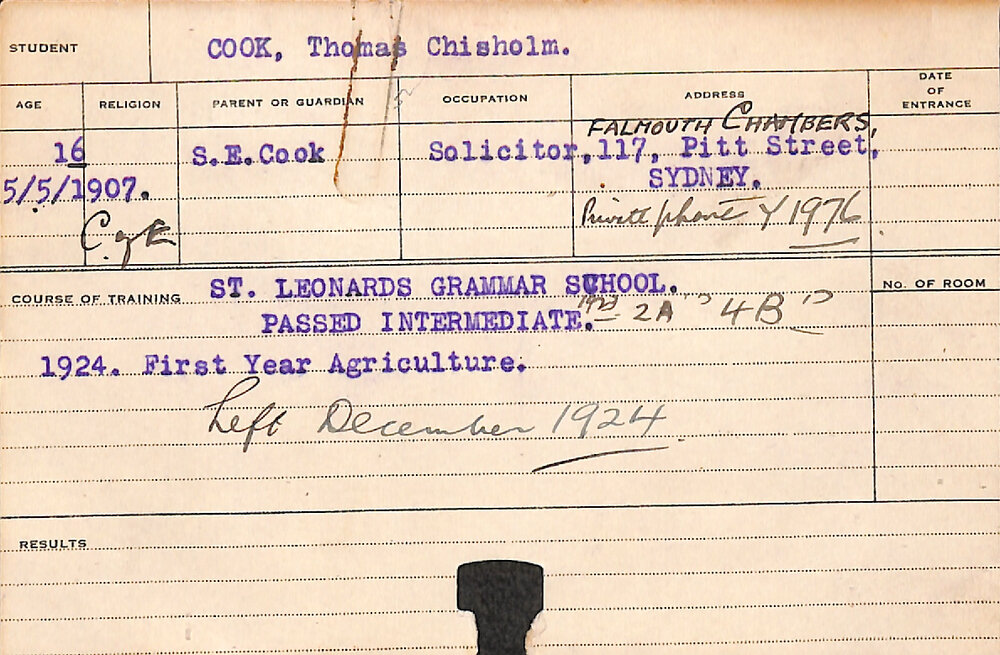 STUDENT COOK, Thomas Chisholm.
AGE RELIGION PARENT OR GUARDIAN OCCUPATION ADDRESS DATE OF ENTRANCE
FALMOUTH CHAMBERS,
16 S.E.Cook Solicitor, 117, Pitt Street,
5/5/1907. SYDNEY.
C. of E Private phone Y 1976
COURSE OF TRAINING ST. LEONARDS GRAMMAR SCHOOL. No. OF ROOM
PASSED INTERMEDIATE. 1923 2A "4B"
1924. First Year Agriculture.
Left December 1924
RESULTS